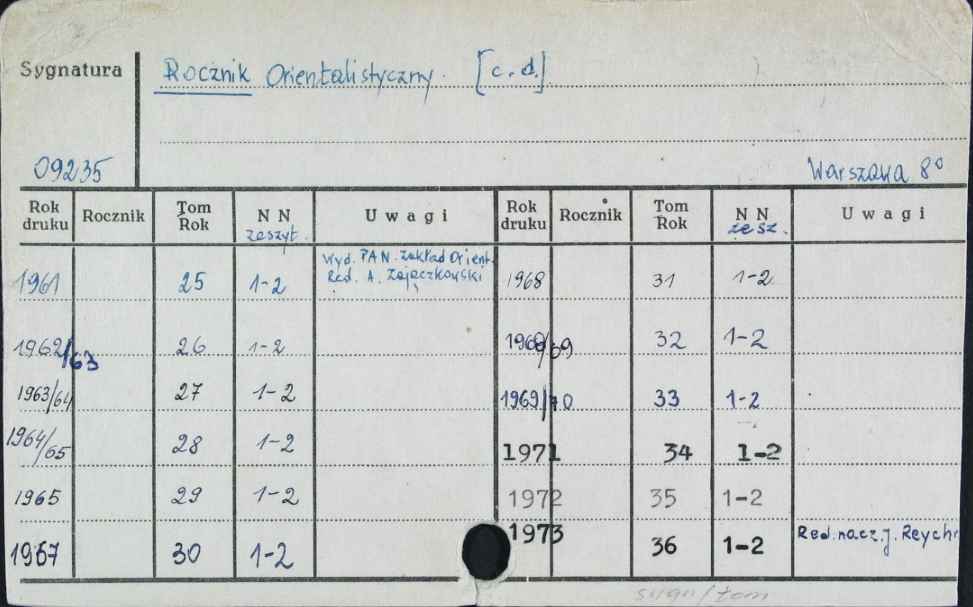 Sygnatura Rocznik Orientalistyczny. [c.d.]
09235 Warszawa 8°
Rok druku Rocznik Tom Rok NN zeszyt. Uwagi Rok druku Rocznik Tom Rok NN zesz. Uwagi
1961 25 1-2 Wyd. PAN. Zakład Orient. Red. A. Zajączkowski 1968 31 1-2
1962/63 26 1-2 1968/69 32 1-2
1963/64 27 1-2 1969/70 33 1-2
1964/65 28 1-2 1971 34 1-2
1965 29 1-2 1972 35 1-2
1967 30 1-2 1973 36 1-2 Red. nacz. J. Reychm